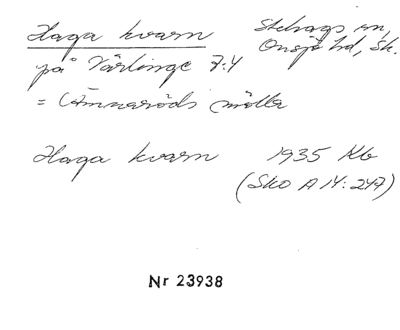 Haga kvarn Stehags sn,
Onsjö hd, Sk.
på Värlinge 7:4
= Ämnaröds möller
Haga kvarn 1935 Kb
(Sko A 14: 247)
Nr 23938